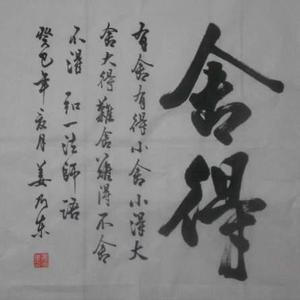 舍得
有舍有得小舍小得大
舍大得難舍難得不舍
不得 弘一法師語
癸巳年夏月姜乃东